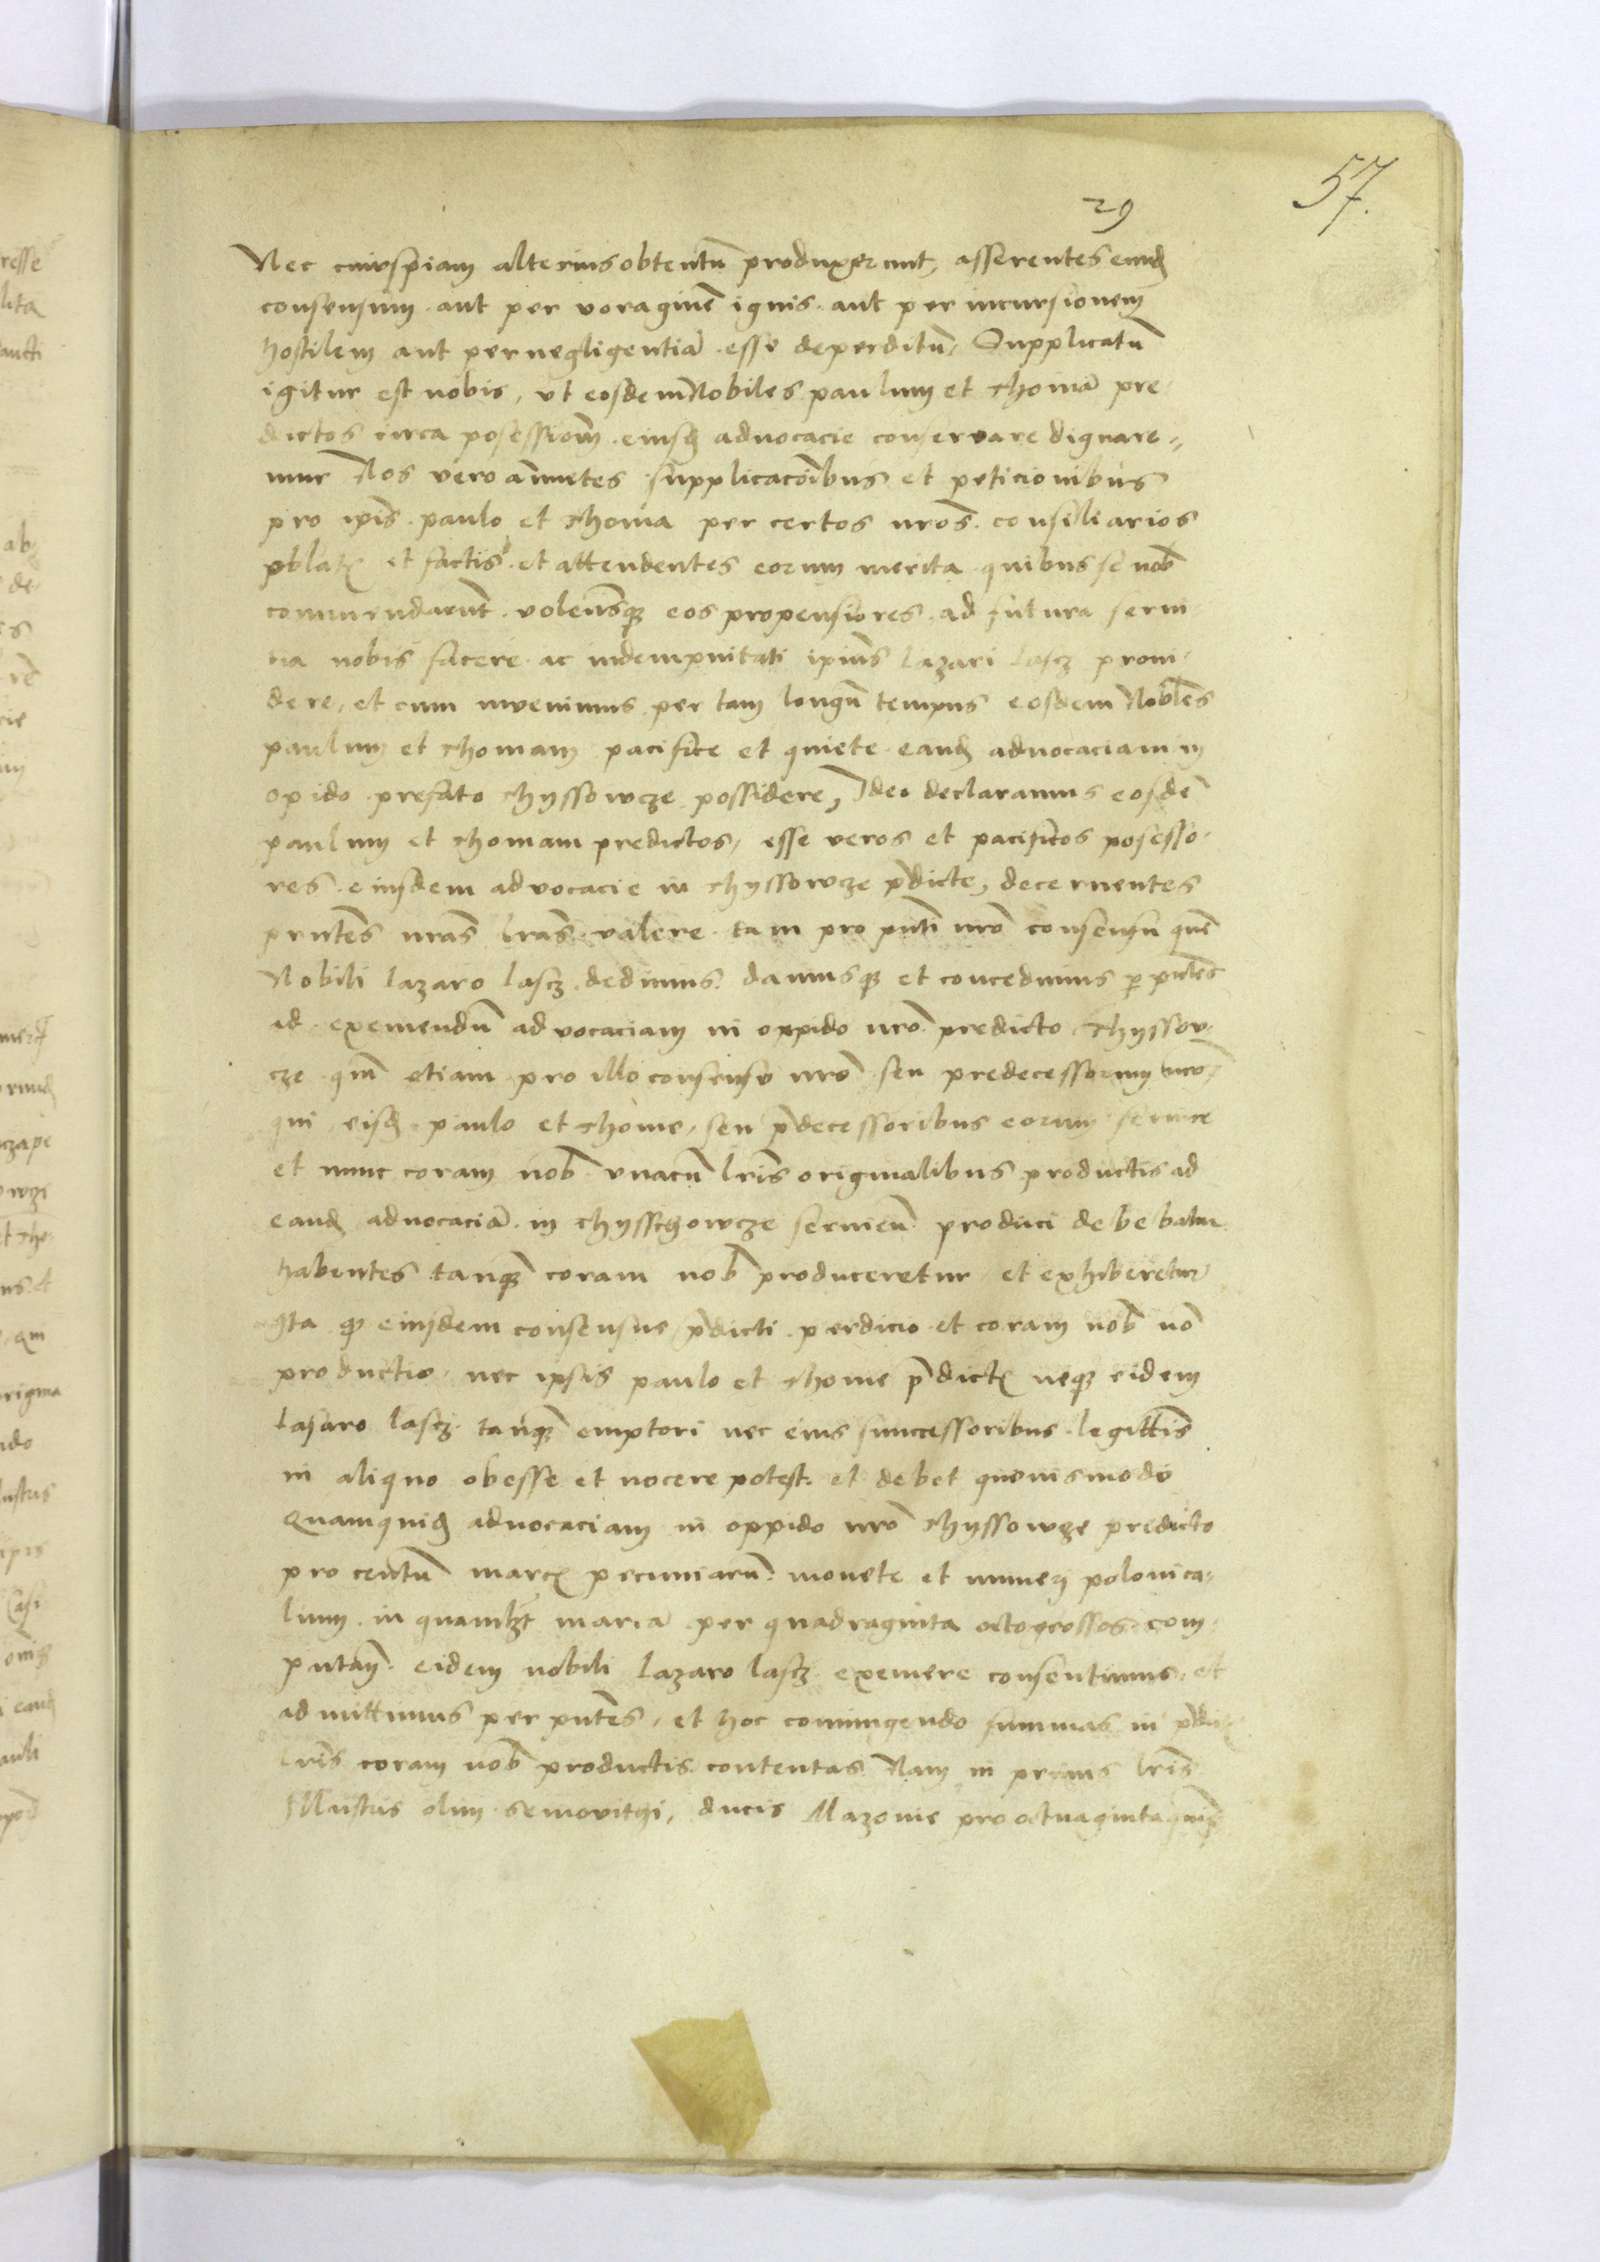 57.
29
Nec cuiuspiam alterius obtentū produxerunt, asserentes eund
consensum aut per voraginē ignis aut per incursionem
hostilem aut per negligentiā esse deperditū, Supplicatū
igitur est nobis, ut eosdem Nobiles paulum et Thomā pre
dictos circa posessionē eiusd advocacie conservare dignare-
mur Nos vero annuētes supplicacōibus et peticionibus
pro ipīs paulo et Thoma per certos nrōs consiliarios
oblatis et factis et attendentes eorum merita quibus se nob
commendarunt volentesq eos propensiores ad futura servi
tia nobis facere ac indempnitati ipīus Lazari Lascz provi-
dere, et cum invenimus per tam longū tempus eosdem Nobles
paulum et Thomam pacifice et quiete eand advocaciam in
opido prefato Thyssowcze possidere, Ideo declaramus eosdē
paulum et Thomam predictos, esse veros et pacificos posesso-
res eiusdem advocacie in Thyssowcze p̄dicte, decernentes
pn̄tes nrās lrās valere tam pro pn̄ti nrō consensu quē
Nobili Lazaro Lascz dedimus damusq et concedimus p pn̄tes
ad exemendū advocaciam in oppido nrō predicto Thyssow-
cze qm̄ etiam pro illo consensu nrō seu predecessorum nrōr
qui eisd paulo et Thome, seu p̄decessoribus eorum servire
et nunc coram nob unacū lrīs originalibus productis ad
eand advocaciā in Thysschowcze servieñ produci debebatur
habentes tanq̄ coram nob produceretur et exhiberetur
Ita q eiusdem consensus p̄dicti perdicio et coram nob nō
productio, nec ipsis paulo et Thome p̄dictis neq eidem
Lasaro Lascz tanq̄ emptori nec eius successoribus legittīs
in aliquo obesse et nocere potest et debet quovismodo
Quamquid advocaciam in oppido nrō Thyssowcze predicto
pro centū marcis pecuniarū monete et numeri polonica-
lium in quamlībt marcā per quadraginta octo grossos com-
putañ eidem nobili Lazaro Lascz exemere consentimus et
admittimus per pn̄tes, et hoc coniungendo summas in p̄dictis
lrīs coram nob productis contentas Nam in primis lrīs
Illustris olim Semovithi, ducis Mazovie pro octuaginta quinq